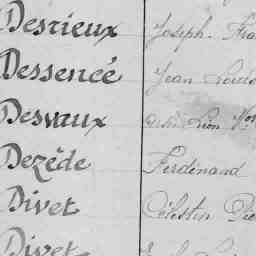 Desrieux Joseph
Dessencé Jean Louis
Desvaux Léon
Dezède Ferdinand
Divet Célestin
Divet